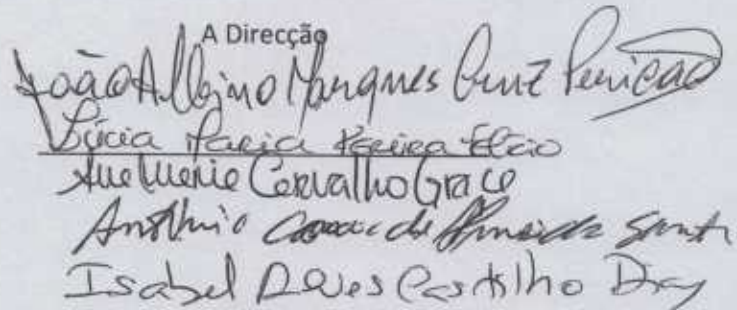 A Direcção
João Albino Marques Cruz
Lúcia Maria
Ana Maria Carvalho Graça
António de Almeida Santos
Isabel Alves Castilho Dias